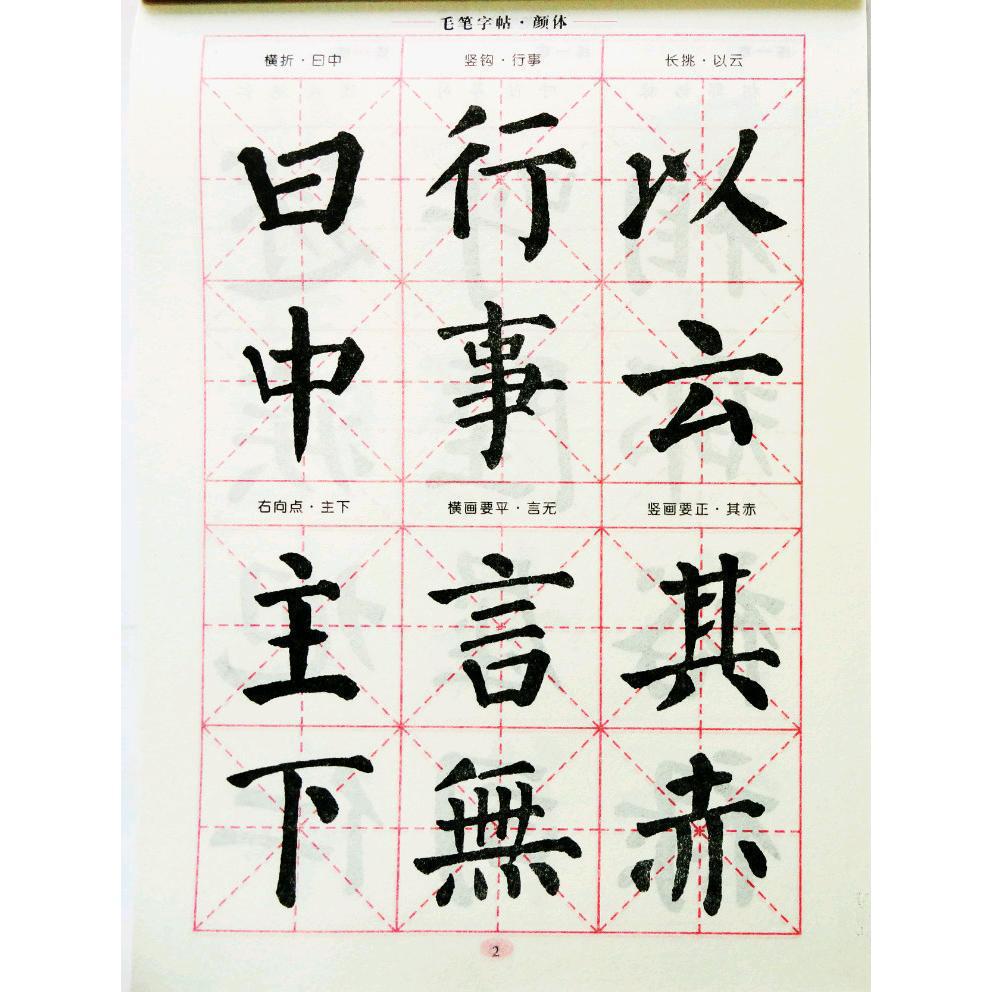 毛笔字帖·颜体
横折·曰中 竖钩·行事 长挑·以云
曰 行 以
中 事 云
右向点·主下 横画要平·言无 竖画要正·其赤
主 言 其
下 無 赤
2